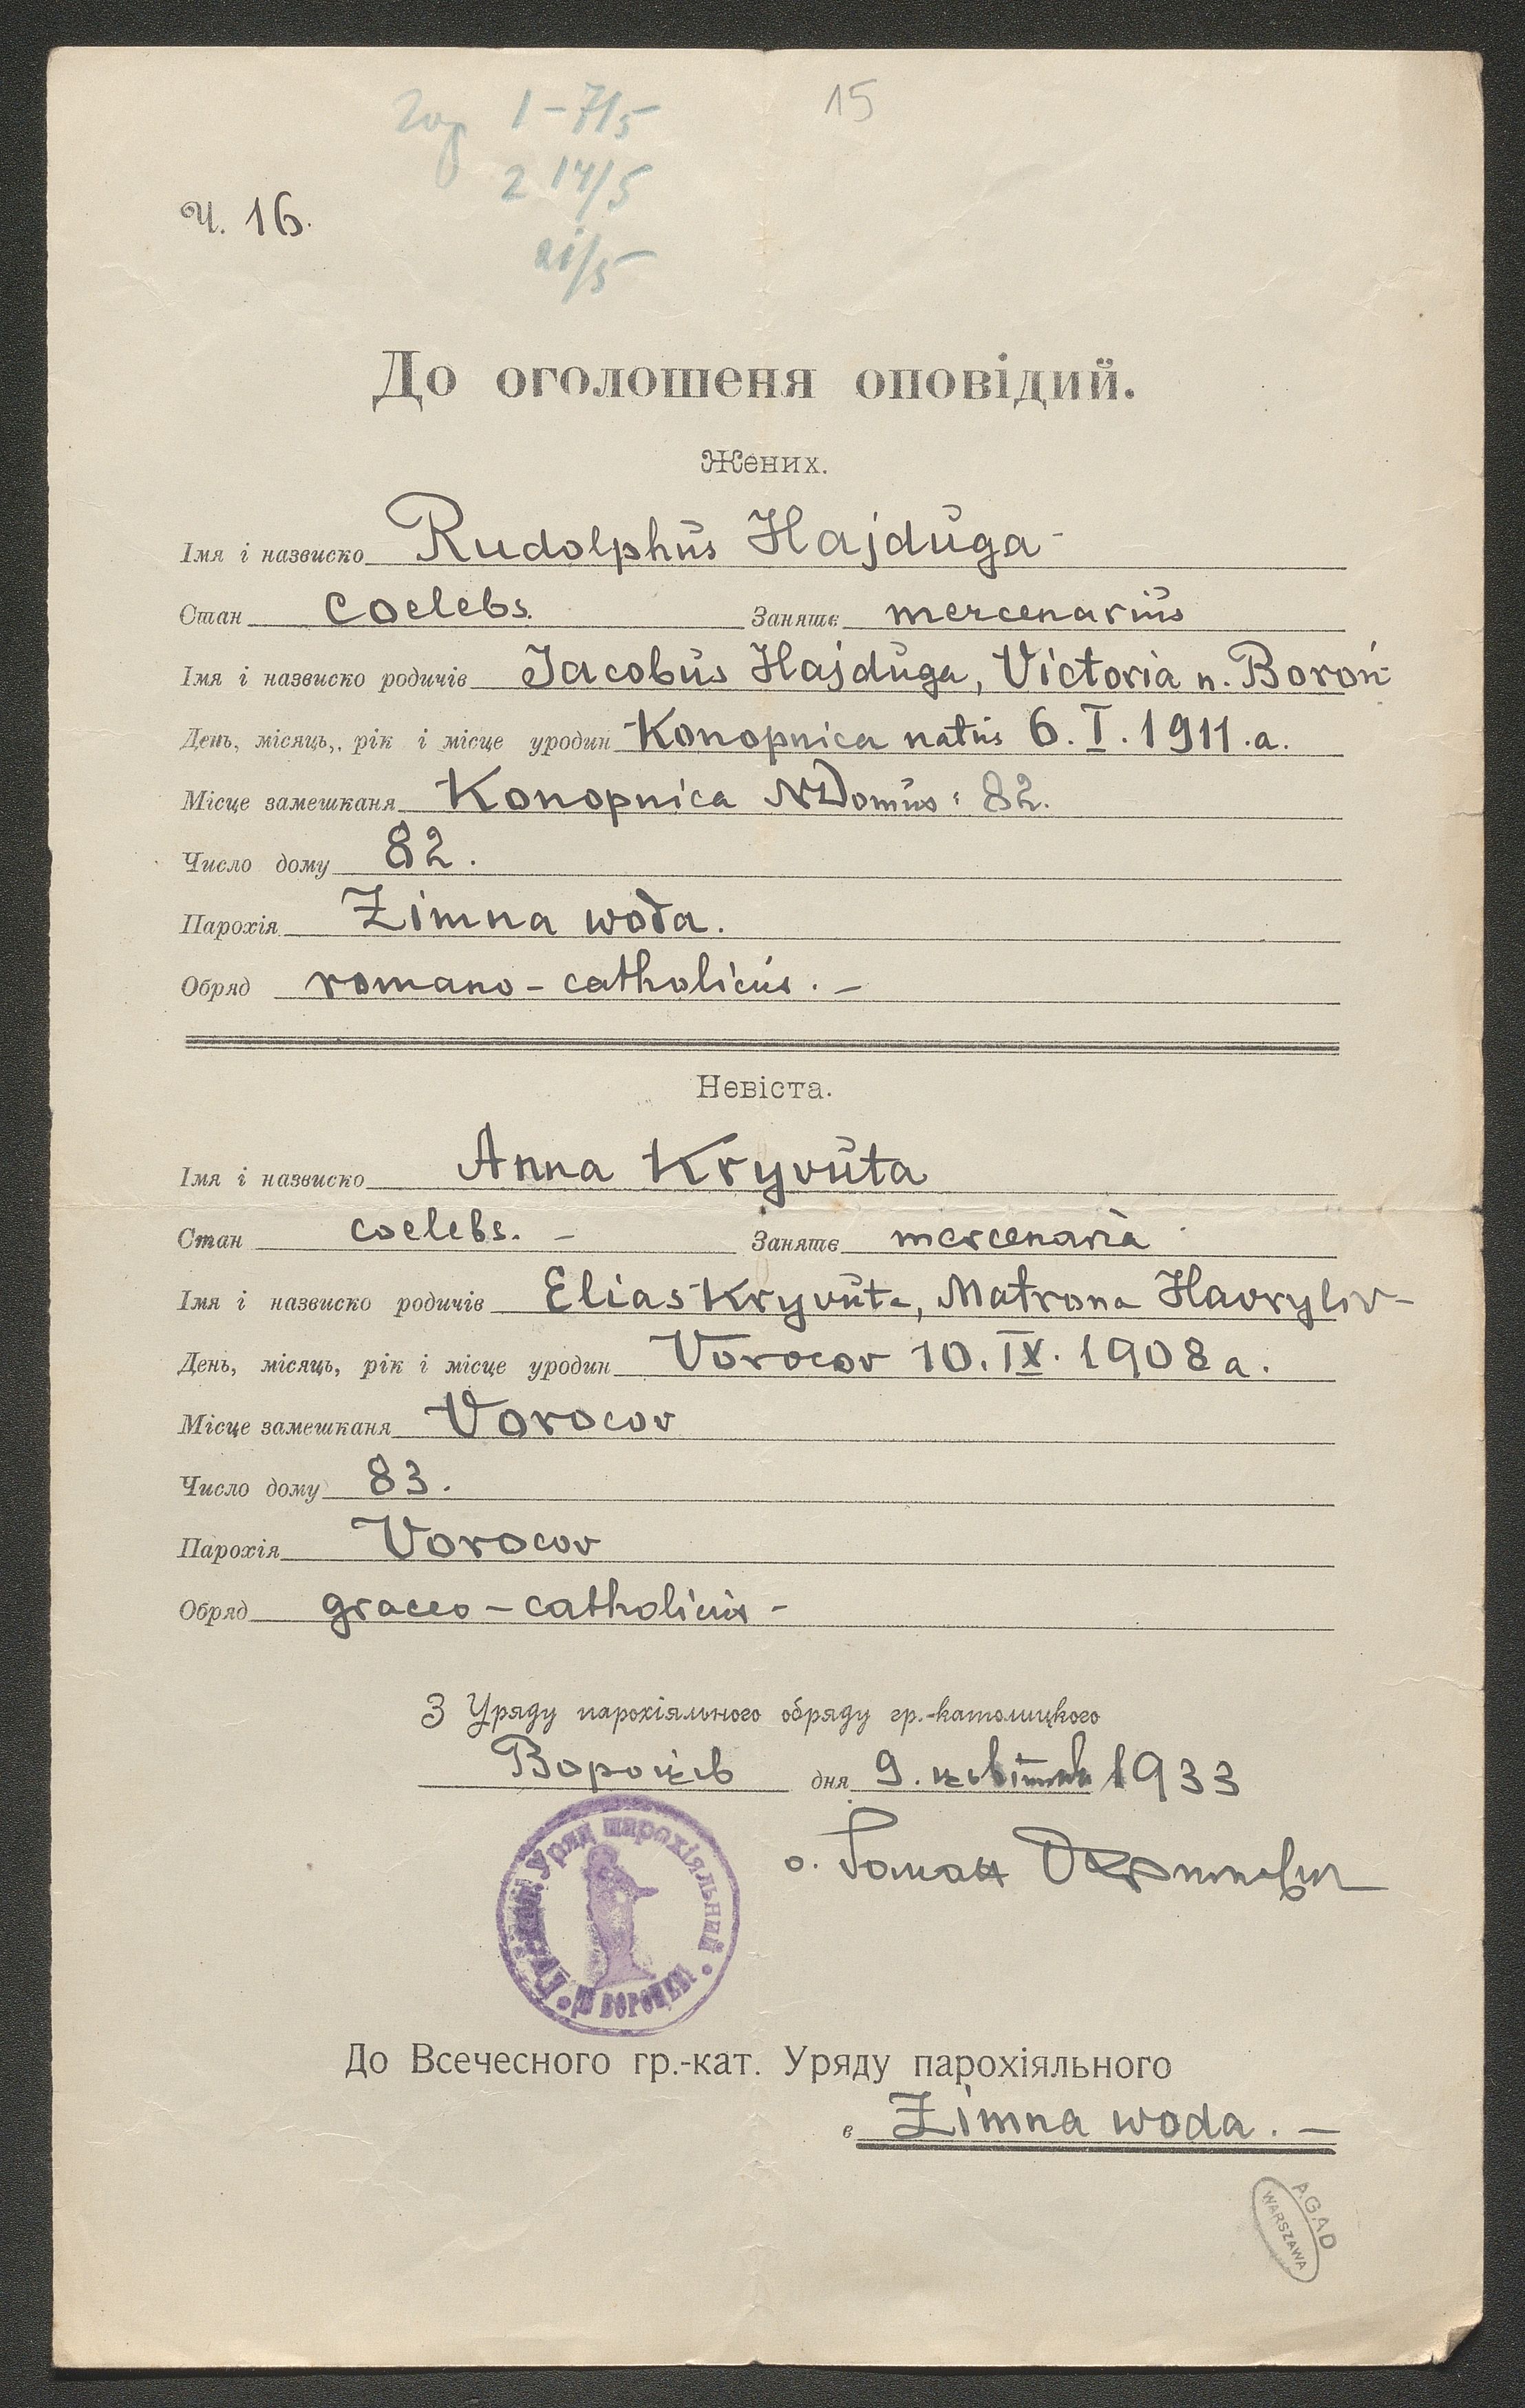 15
1-7/5
2 14/5
21/5
Ч. 16.
До оголошеня оповідий.
Жених.
Імя і назвиско Rudolphus Hajduga -
Стан coelebs. Занятє mercenarius
Імя і назвиско родичів Jacobus Hajduga, Victoria n. Boroń
День, місяць, рік і місце уродин Konopnica natus 6. I. 1911. a.
Місце замешканя Konopnica NDomus: 82.
Число дому 82.
Парохія Zimna woda.
Обряд romano - catholicus. -
Невіста.
Імя і назвиско Anna Kryvuta
Стан coelebs. - Занятє mercenaria
Імя і назвиско родичів Elias Kryvuta, Matrona Havryliv -
День, місяць, рік і місце уродин Vorocov 10. IX. 1908 a.
Місце замешканя Vorocov
Число дому 83.
Парохія Vorocov
Обряд graeco - catholicus -
З Уряду парохіяльного обряду гр.-католицького
Вороців дня 9. цвітня 1933
о. Роман
Гр.-кат. Уряд парохіяльний
До Всечесного гр.-кат. Уряду парохіяльного
в Zimna woda. -
AGAD
WARSZAWA